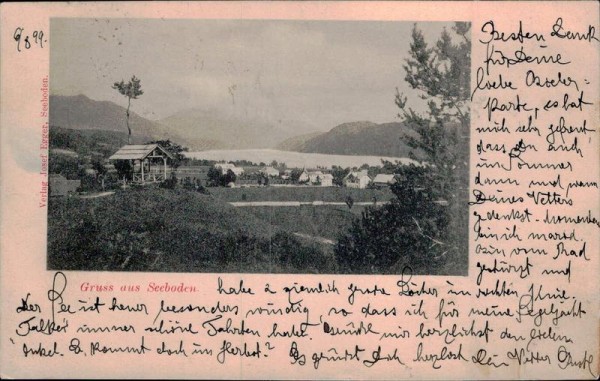 6/8 99.
Verlag Josef Egger, Seeboden.
Besten Dank
für Deine
liebe
karte, es hat
mich sehr gefreut,
dass Du auch
im Sommer
dann und wann
Deines Vetters
gedenkst. Momentan
bin ich
vom Rad
gestürzt und
Gruss aus Seeboden.
habe 2 ziemlich grosse Löcher im rechten Knie.
Der See ist heuer besonders windig, so dass ich für meine Segelyacht
immer schöne Fahrten habe. mir herzlichst den
Onkel. Er kommt doch im Herbst? Es grüsst Dich herzlich Dein Vetter